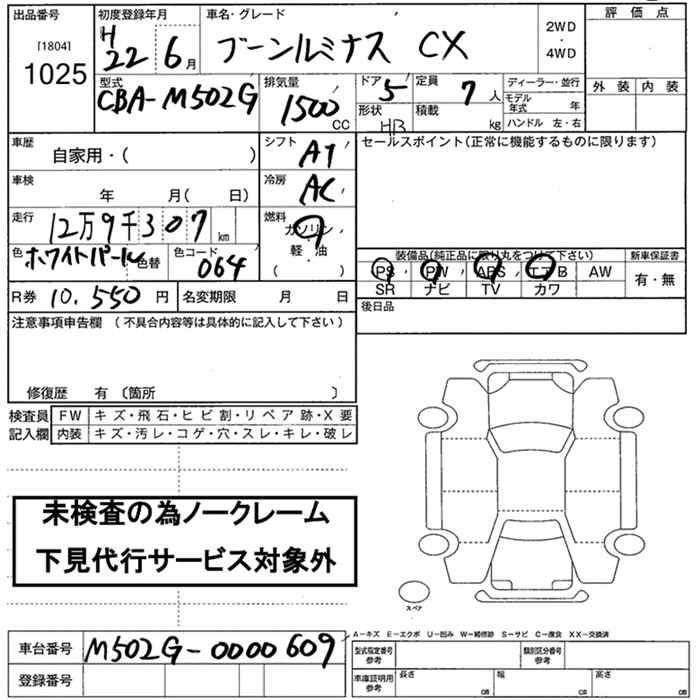 出品番号
[1804]
1025
初度登録年月
H 22年 6月
車名・グレード
ブーンルミナス CX
2WD
・
4WD
評価点
外装 内装
型式
CBA-M502G
排気量
1500 CC
ドア 5
形状 HB
定員 7 人
積載 kg
ディーラー・並行
モデル年式 年
ハンドル 左・右
車歴
自家用・( )
シフト AT
セールスポイント(正常に機能するものに限ります)
車検
年 月( 日)
冷房 AC
走行
12万9千307 km
燃料
ガソリン
軽・油
( )
色 ホワイトパール 色替
色コード 064
装備品(純正品に限り丸をつけて下さい)
新車保証書
PS PW ABS エアB AW
SR ナビ TV カワ
有・無
R券 10,550 円
名変期限 月 日
後日品
注意事項申告欄 (不具合内容等は具体的に記入して下さい)
修復歴 有 〔箇所 〕
検査員記入欄
FW キズ・飛石・ヒビ割・リペア跡・X要
内装 キズ・汚レ・コゲ・穴・スレ・キレ・破レ
未検査の為ノークレーム
下見代行サービス対象外
スペア
A-キズ E-エクボ U-凹み W-補修跡 S-サビ C-腐食 XX-交換済
車台番号 M502G-0000609
登録番号
型式指定番号 参考
類別区分番号 参考
車庫証明用 参考
長さ cm 幅 cm 高さ cm